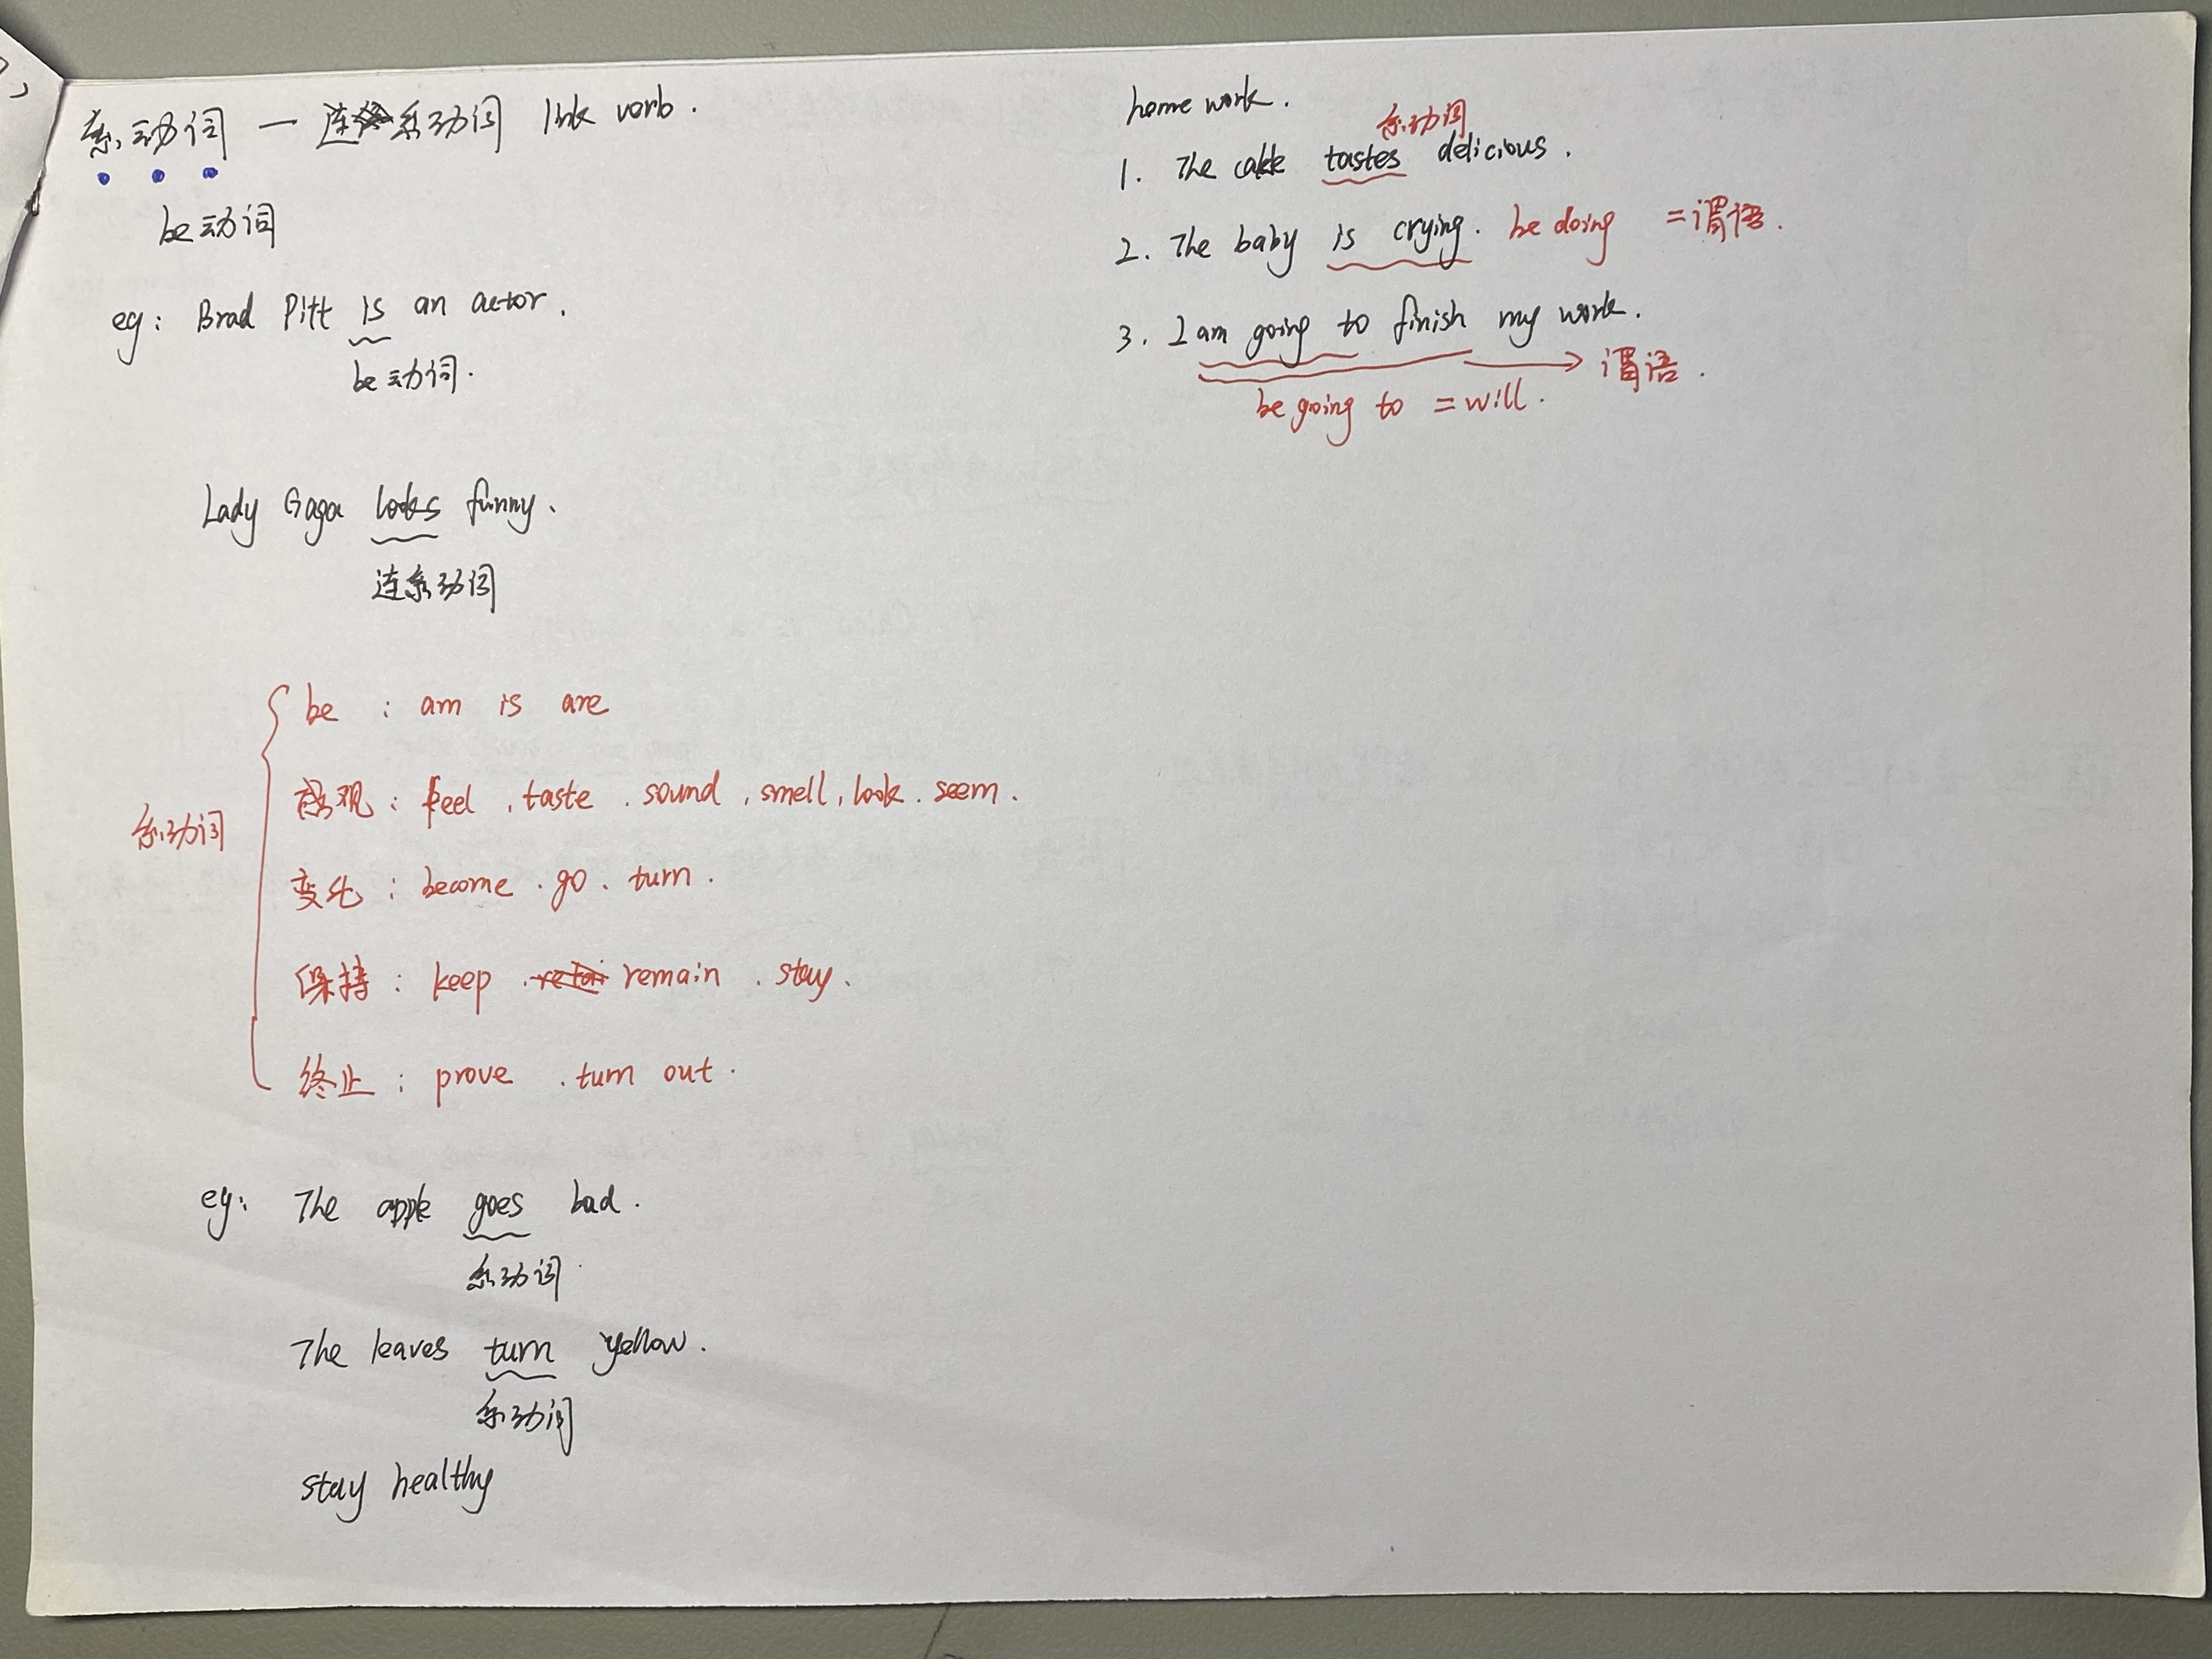 系动词 — 连系动词 link verb.
be动词
eg: Brad Pitt is an actor.
be动词.
Lady Gaga looks funny.
连系动词
系动词
be : am is are
感观 : feel . taste . sound . smell . look . seem .
变化 : become . go . turn .
保持 : keep . remain . stay .
终止 : prove . turn out .
eg: The apple goes bad .
系动词.
The leaves turn yellow .
系动词
stay healthy
home work .
系动词
1. The cake tastes delicious .
2. The baby is crying . be doing =谓语.
3. I am going to finish my work .
谓语 .
be going to = will .